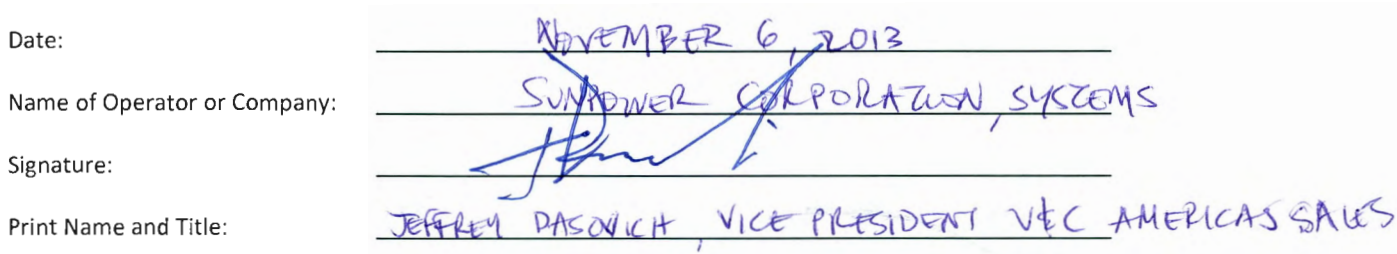 Date: NOVEMBER 6, 2013
Name of Operator or Company: SUNPOWER CORPORATION, SYSTEMS
Signature:
Print Name and Title: JEFFREY DASOVICH, VICE PRESIDENT V&C AMERICAS SALES